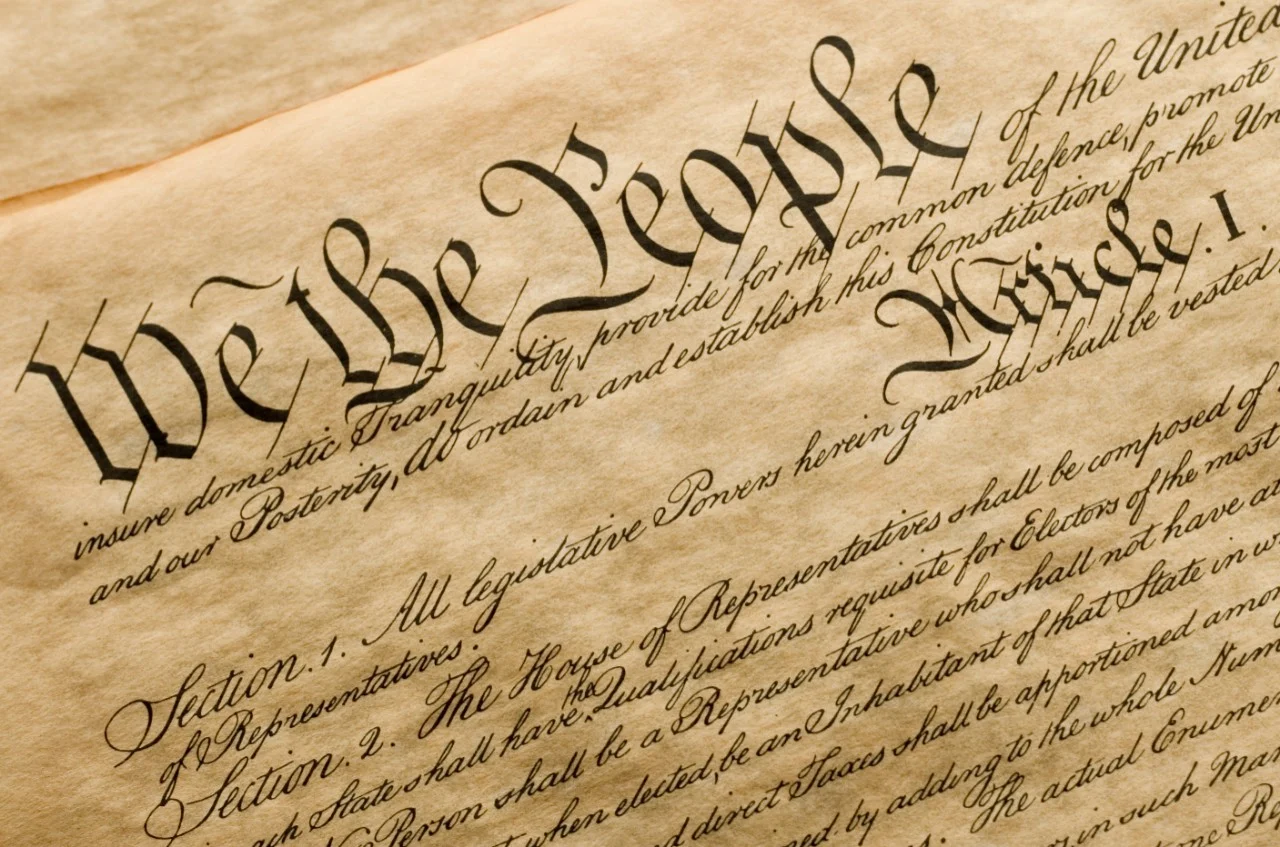 We the People of the United
insure domestic Tranquility, provide for the common defence, promote
and our Posterity, do ordain and establish this Constitution for the Un
Article. I.
Section. 1. All legislative Powers herein granted shall be vested
of Representatives.
Section. 2. The House of Representatives shall be composed of
ach State shall have the Qualifications requisite for Electors of the most
Person shall be a Representative who shall not have at
when elected, be an Inhabitant of that State in w
d direct Taxes shall be apportioned amon
ned by adding to the whole Num
The actual Enumer
in such Man